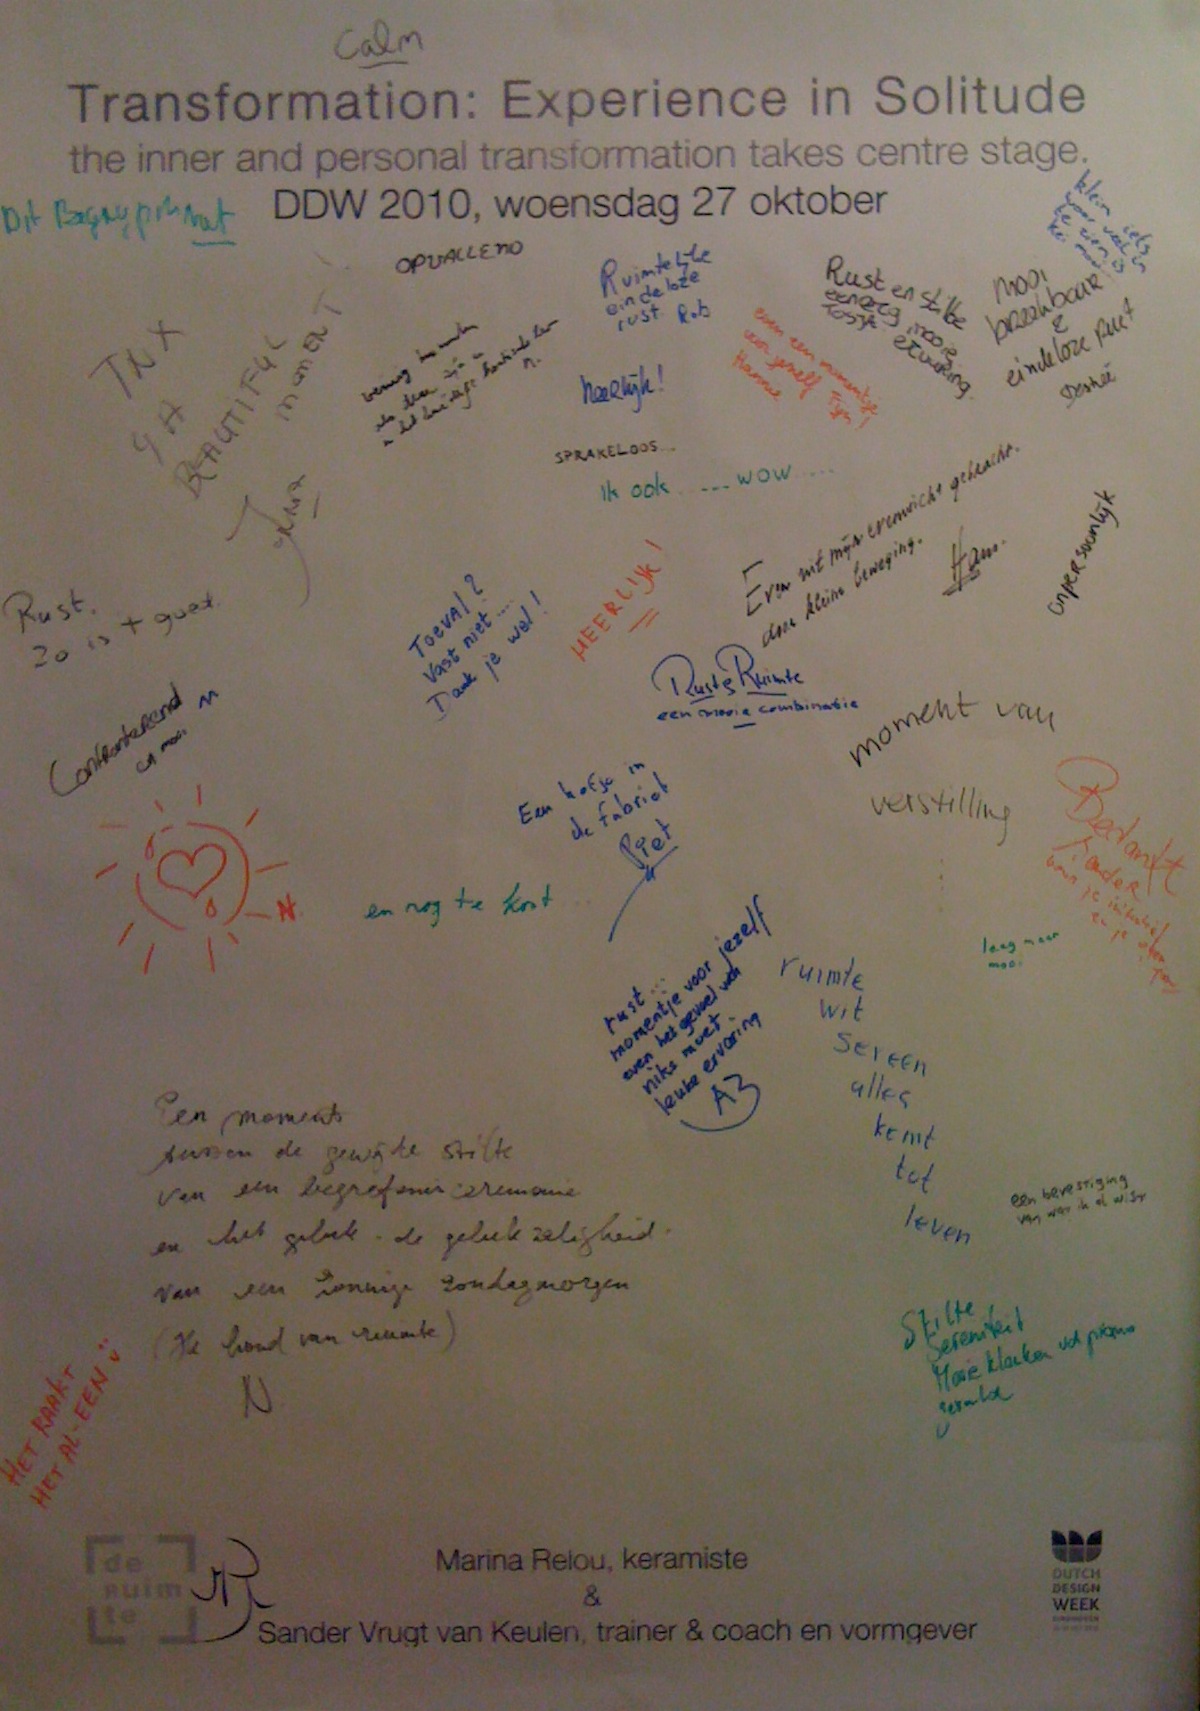 Calm
Transformation: Experience in Solitude
the inner and personal transformation takes centre stage.
DDW 2010, woensdag 27 oktober
Dit
OPVALLEND
Ruimtelijke
eindeloze
rust Rob
Rust en stilte
mooi
breekbaar
&
eindeloze
Desireé
klein iets
TNX
4 A
BEAUTIFUL
MOMENT
even een momentje
voor jezelf
Hannie
heerlijk!
SPRAKELOOS...
Ik ook ..... WOW .....
Even uit mijn evenwicht gebracht.
door kleine beweging.
Han.
onpersoonlijk
Rust.
Zo is + goed.
TOEVAL?
Vast niet....
Dank je wel!
HEERLIJK!
Rust & Ruimte
een mooie combinatie
Confronterend
en mooi
moment van
verstilling
Een hofje in
de fabriek
Piet
Bedankt
Sander
en nog te kort ...
leeg maar
mooi
rust...
momentje voor jezelf
even het gevoel van
niks moet.
leuke ervaring
ruimte
wit
sereen
alles
komt
tot
leven
Een moment
tussen de gewijde stilte
van een begrafenis ceremonie
en het geluk - de gelukzaligheid.
van een zonnige zondagmorgen
N
een bevestiging
van wat ik al wist
Stilte
Sereniteit
Mooie klanken
HET RAAKT
HET AL-EEN
de
ruim
te
Marina Relou, keramiste
&
Sander Vrugt van Keulen, trainer & coach en vormgever
DUTCH
DESIGN
WEEK